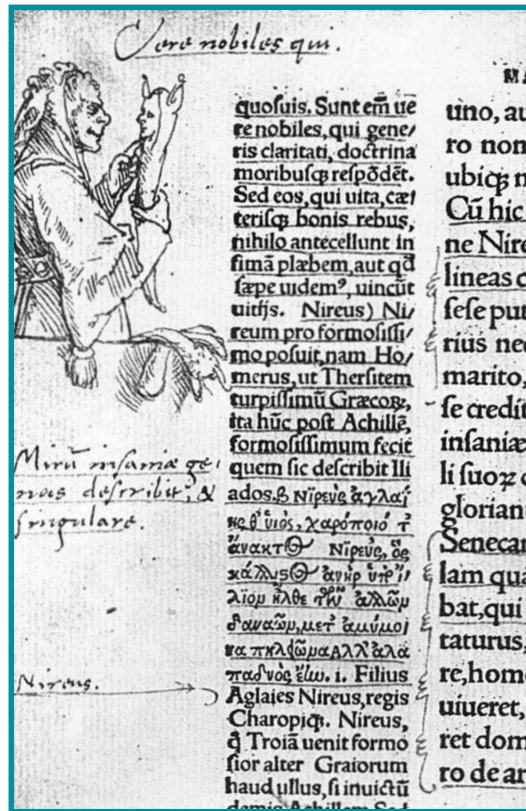 Vere nobiles qui.
Mirū insaniæ ge,
nus describit, &
singulare.
Nireus.
quosuis. Sunt em̄ ue
re nobiles, qui gene/
ris claritati, doctrina
moribusqꝫ respōdēt.
Sed eos, qui uita, cæt
terisqꝫ bonis rebus,
nihilo antecellunt in
fimā plæbem, aut qd
sæpe uidemꝰ, uincūt
uitijs. Nireus) Ni/
reum pro formosissi/
mo posuit, nam Ho/
merus, ut Thersitem
turpissimū Græcoꝝ,
ita hūc post Achillē,
formosissimum fecit
quem sic describit Ili
ados. β Νῖρευς ἀγλαί
ης θ' υἱός, χαρόποιό τ'
ἄνακτος Νῖρεύς, ὃς
κάλλιστος ἀνὴρ ὑπ' ἴ/
λιομ ἦλθε τῶν ἄλλωμ
δαναῶμ, μετ' ἀμύμοι
να πηλείωμα Αλλ' ἀλα
παδνὸς ἔην. i. Filius
Aglaies Nireus, regis
Charopiqꝫ. Nireus,
q̄ Troiā uenit formo
sior alter Graiorum
haud ullus, si inuictū
demis Achillem Sed
MA
uno, au
ro non
ubiqꝫ n
Cū hic
ne Nire
lineas c
sese put
rius nec
marito,
se credit
insaniæ
li suoꝝ c
gloriant
Senecan
lam quā
bat, qui
taturus,
re, home
uiueret,
ret dom
ro de ar